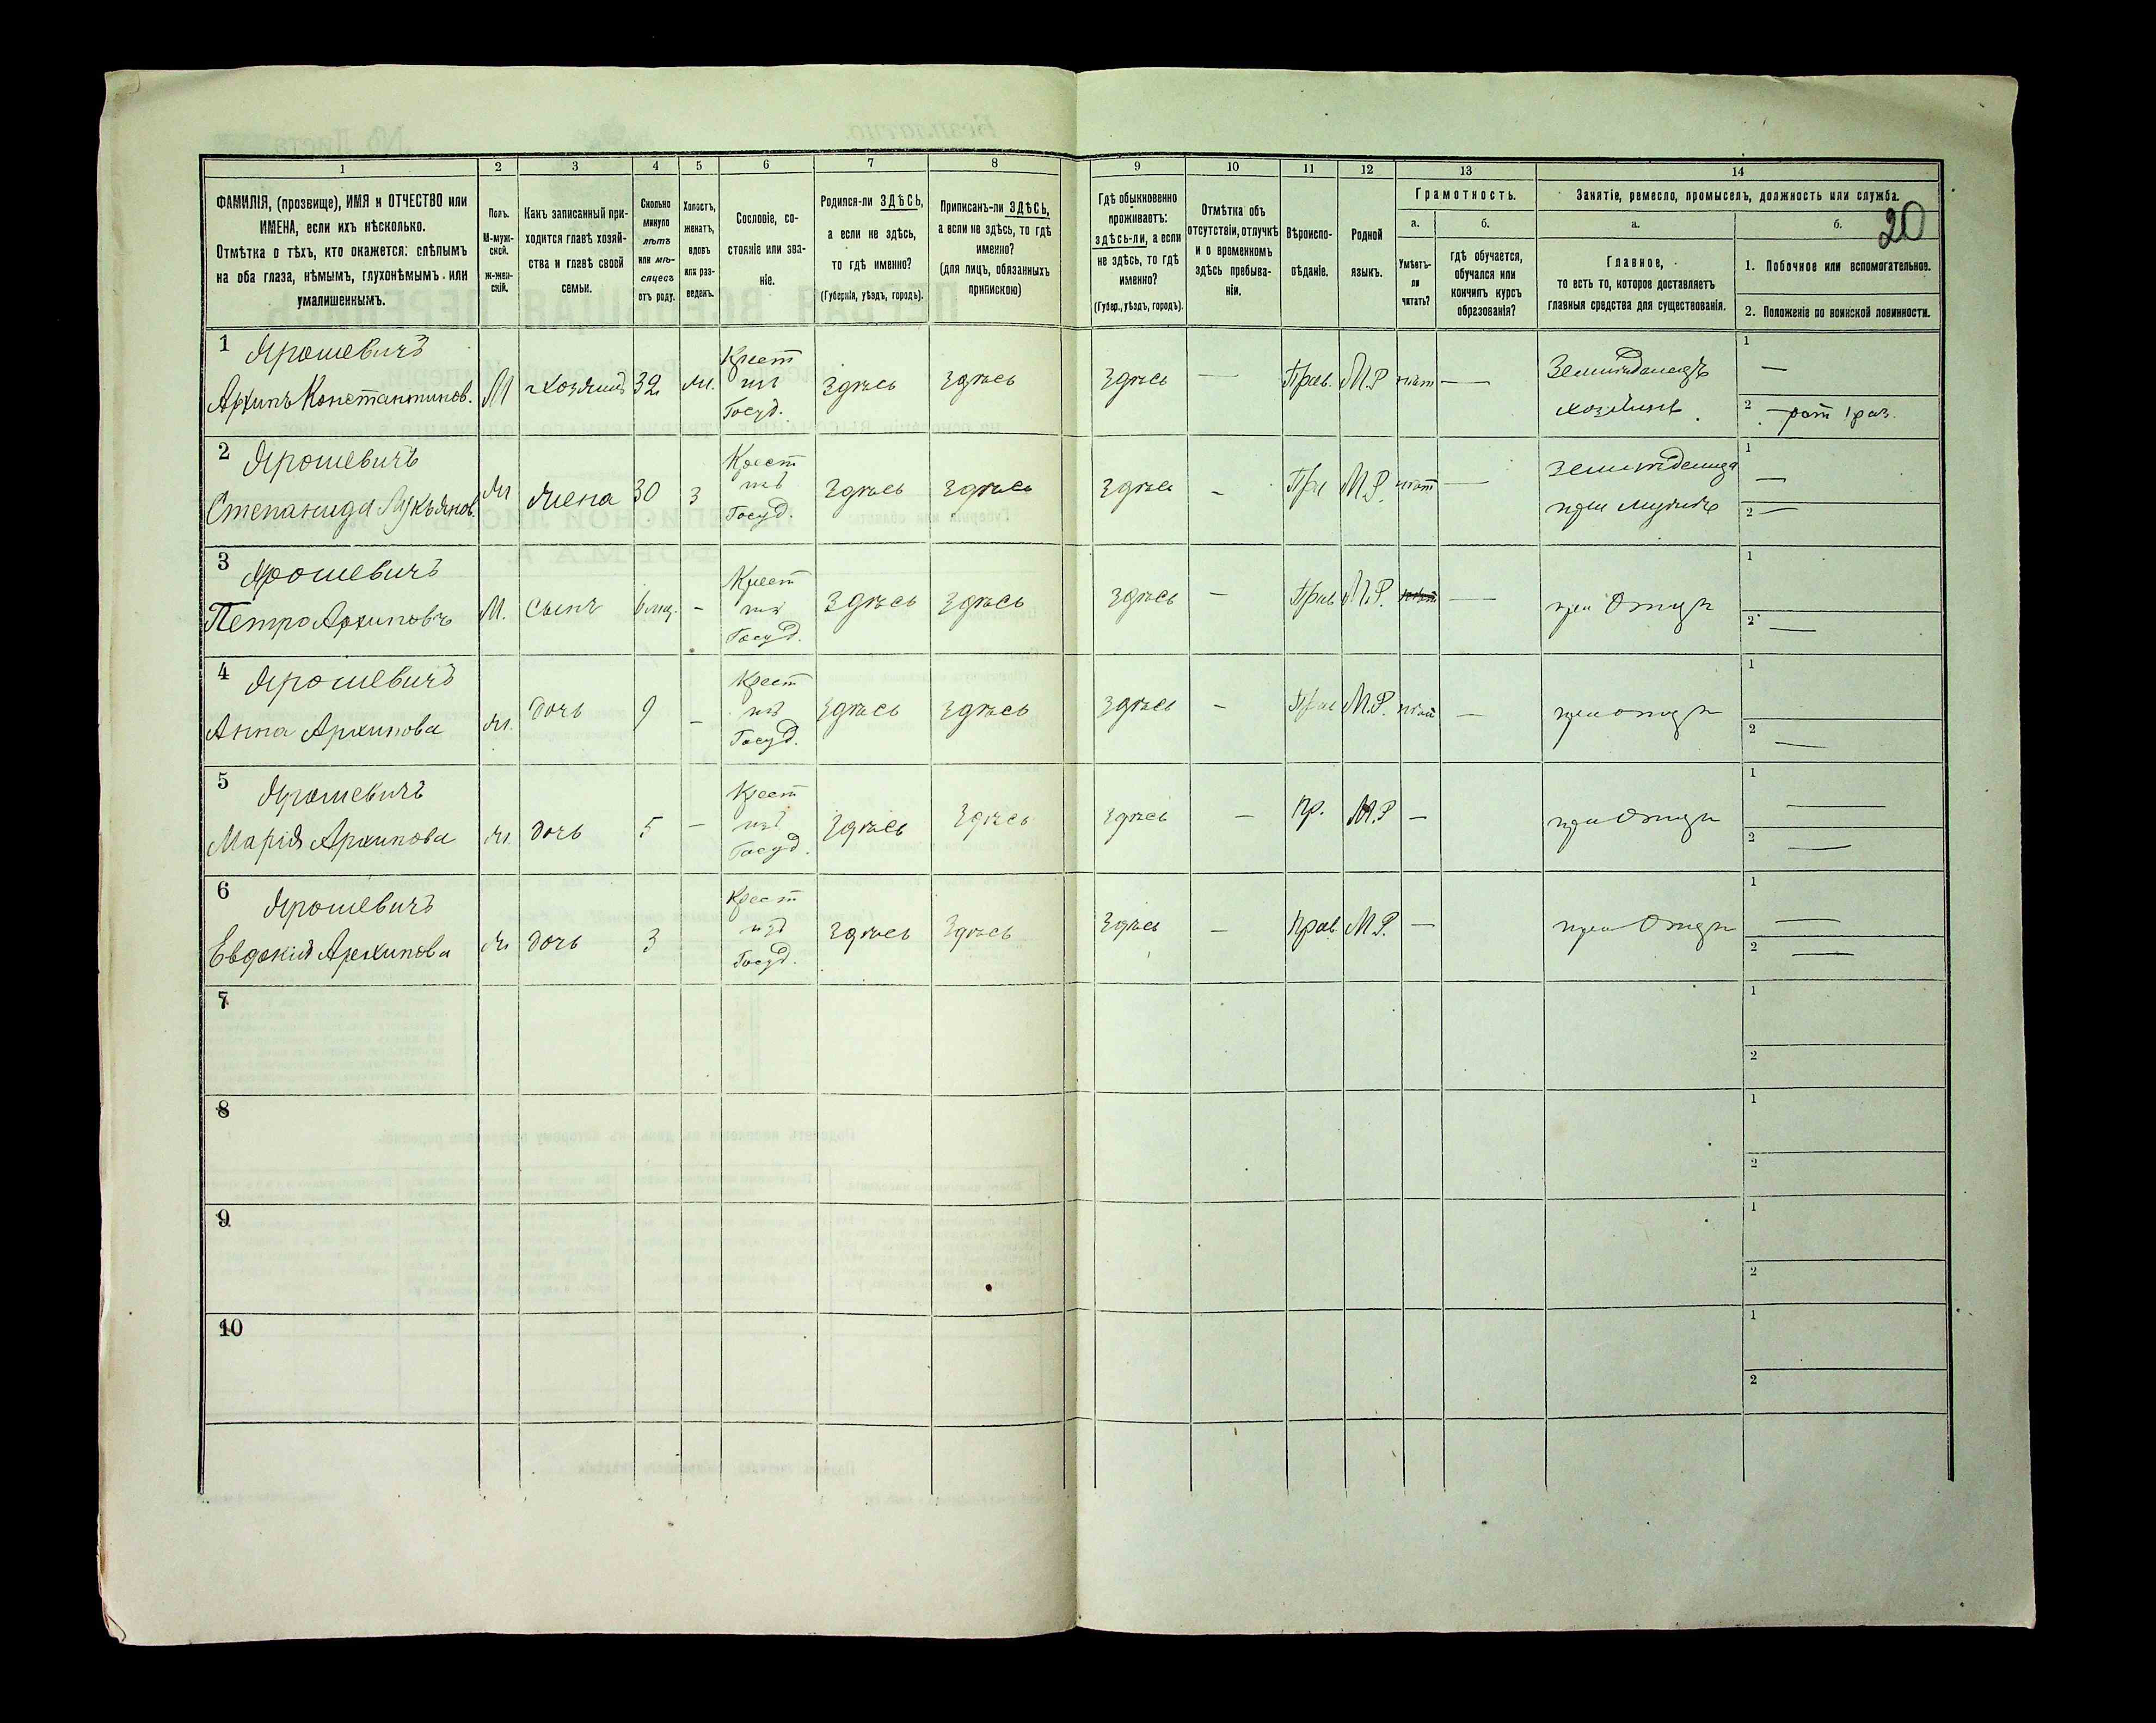 20
1 2 3 4 5 6 7 8 9 10 11 12 13 14
ФАМИЛІЯ, (прозвище), ИМЯ и ОТЧЕСТВО или
ИМЕНА, если ихъ нѣсколько.
Отмѣтка о тѣхъ, кто окажется: слѣпымъ
на оба глаза, нѣмымъ, глухонѣмымъ или
умалишеннымъ.
Полъ.
М-муж-
ской.
ж-жен-
скій.
Какъ записанный при-
ходится главѣ хозяй-
ства и главѣ своей
семьи.
Сколько
минуло
лѣтъ
или мѣ-
сяцевъ
отъ роду.
Холостъ,
женатъ,
вдовъ
или раз-
веденъ.
Сословіе, со-
стояніе или зва-
ніе.
Родился-ли ЗДѢСЬ,
а если не здѣсь,
то гдѣ именно?
(Губернія, уѣздъ, городъ).
Приписанъ-ли ЗДѢСЬ,
а если не здѣсь, то гдѣ
именно?
(для лицъ, обязанныхъ
припискою)
Гдѣ обыкновенно
проживаетъ:
здѣсь-ли, а если
не здѣсь, то гдѣ
именно?
(Губер., уѣздъ, городъ).
Отмѣтка объ
отсутствіи, отлучкѣ
и о временномъ
здѣсь пребыва-
ніи.
Вѣроиспо-
вѣданіе.
Родной
языкъ.
Грамотность.
а. б.
Умѣетъ-
ли
читать?
гдѣ обучается,
обучался или
кончилъ курсъ
образованія?
Занятіе, ремесло, промыселъ, должность или служба.
а. б.
Главное,
то есть то, которое доставляетъ
главныя средства для существованія.
1. Побочное или вспомогательное.
2. Положеніе по воинской повинности.
1 Ярошевичъ
Архипъ Константинов. М хозяинъ 32 ж. Крест изъ Госуд. здѣсь здѣсь здѣсь — Прав. М.Р нѣт — Земледѣлецъ хозяинъ
1 —
2 — рат 1 раз.
2 Ярошевичъ
Степанида Лукьянов. ж жена 30 з Крест изъ Госуд. здѣсь здѣсь здѣсь — Пра М.Р. нѣт — земледелица при мужѣ
1 —
2 —
3 Ярошевичъ
Петро Архиповъ М. сынъ 6 мц. — Крест изъ Госуд. здѣсь здѣсь здѣсь — Прав М.Р. — при Отцѣ
1
2 —
4 Ярошевичъ
Анна Архипова ж. дочь 9 — Крест изъ Госуд. здѣсь здѣсь здѣсь — Прав М.Р. нѣт — при отцѣ
1
2 —
5 Ярошевичъ
Марія Архипова ж. дочь 5 — Крест изъ Госуд. здѣсь здѣсь здѣсь — Пр. М.Р — при Отцѣ
1 —
2 —
6 Ярошевичъ
Евдокія Архипова ж дочь 3 Крест изъ Госуд. здѣсь здѣсь здѣсь — Прав М.Р. — при Отцѣ
1 —
2 —
7
1
2
8
1
2
9
1
2
10
1
2